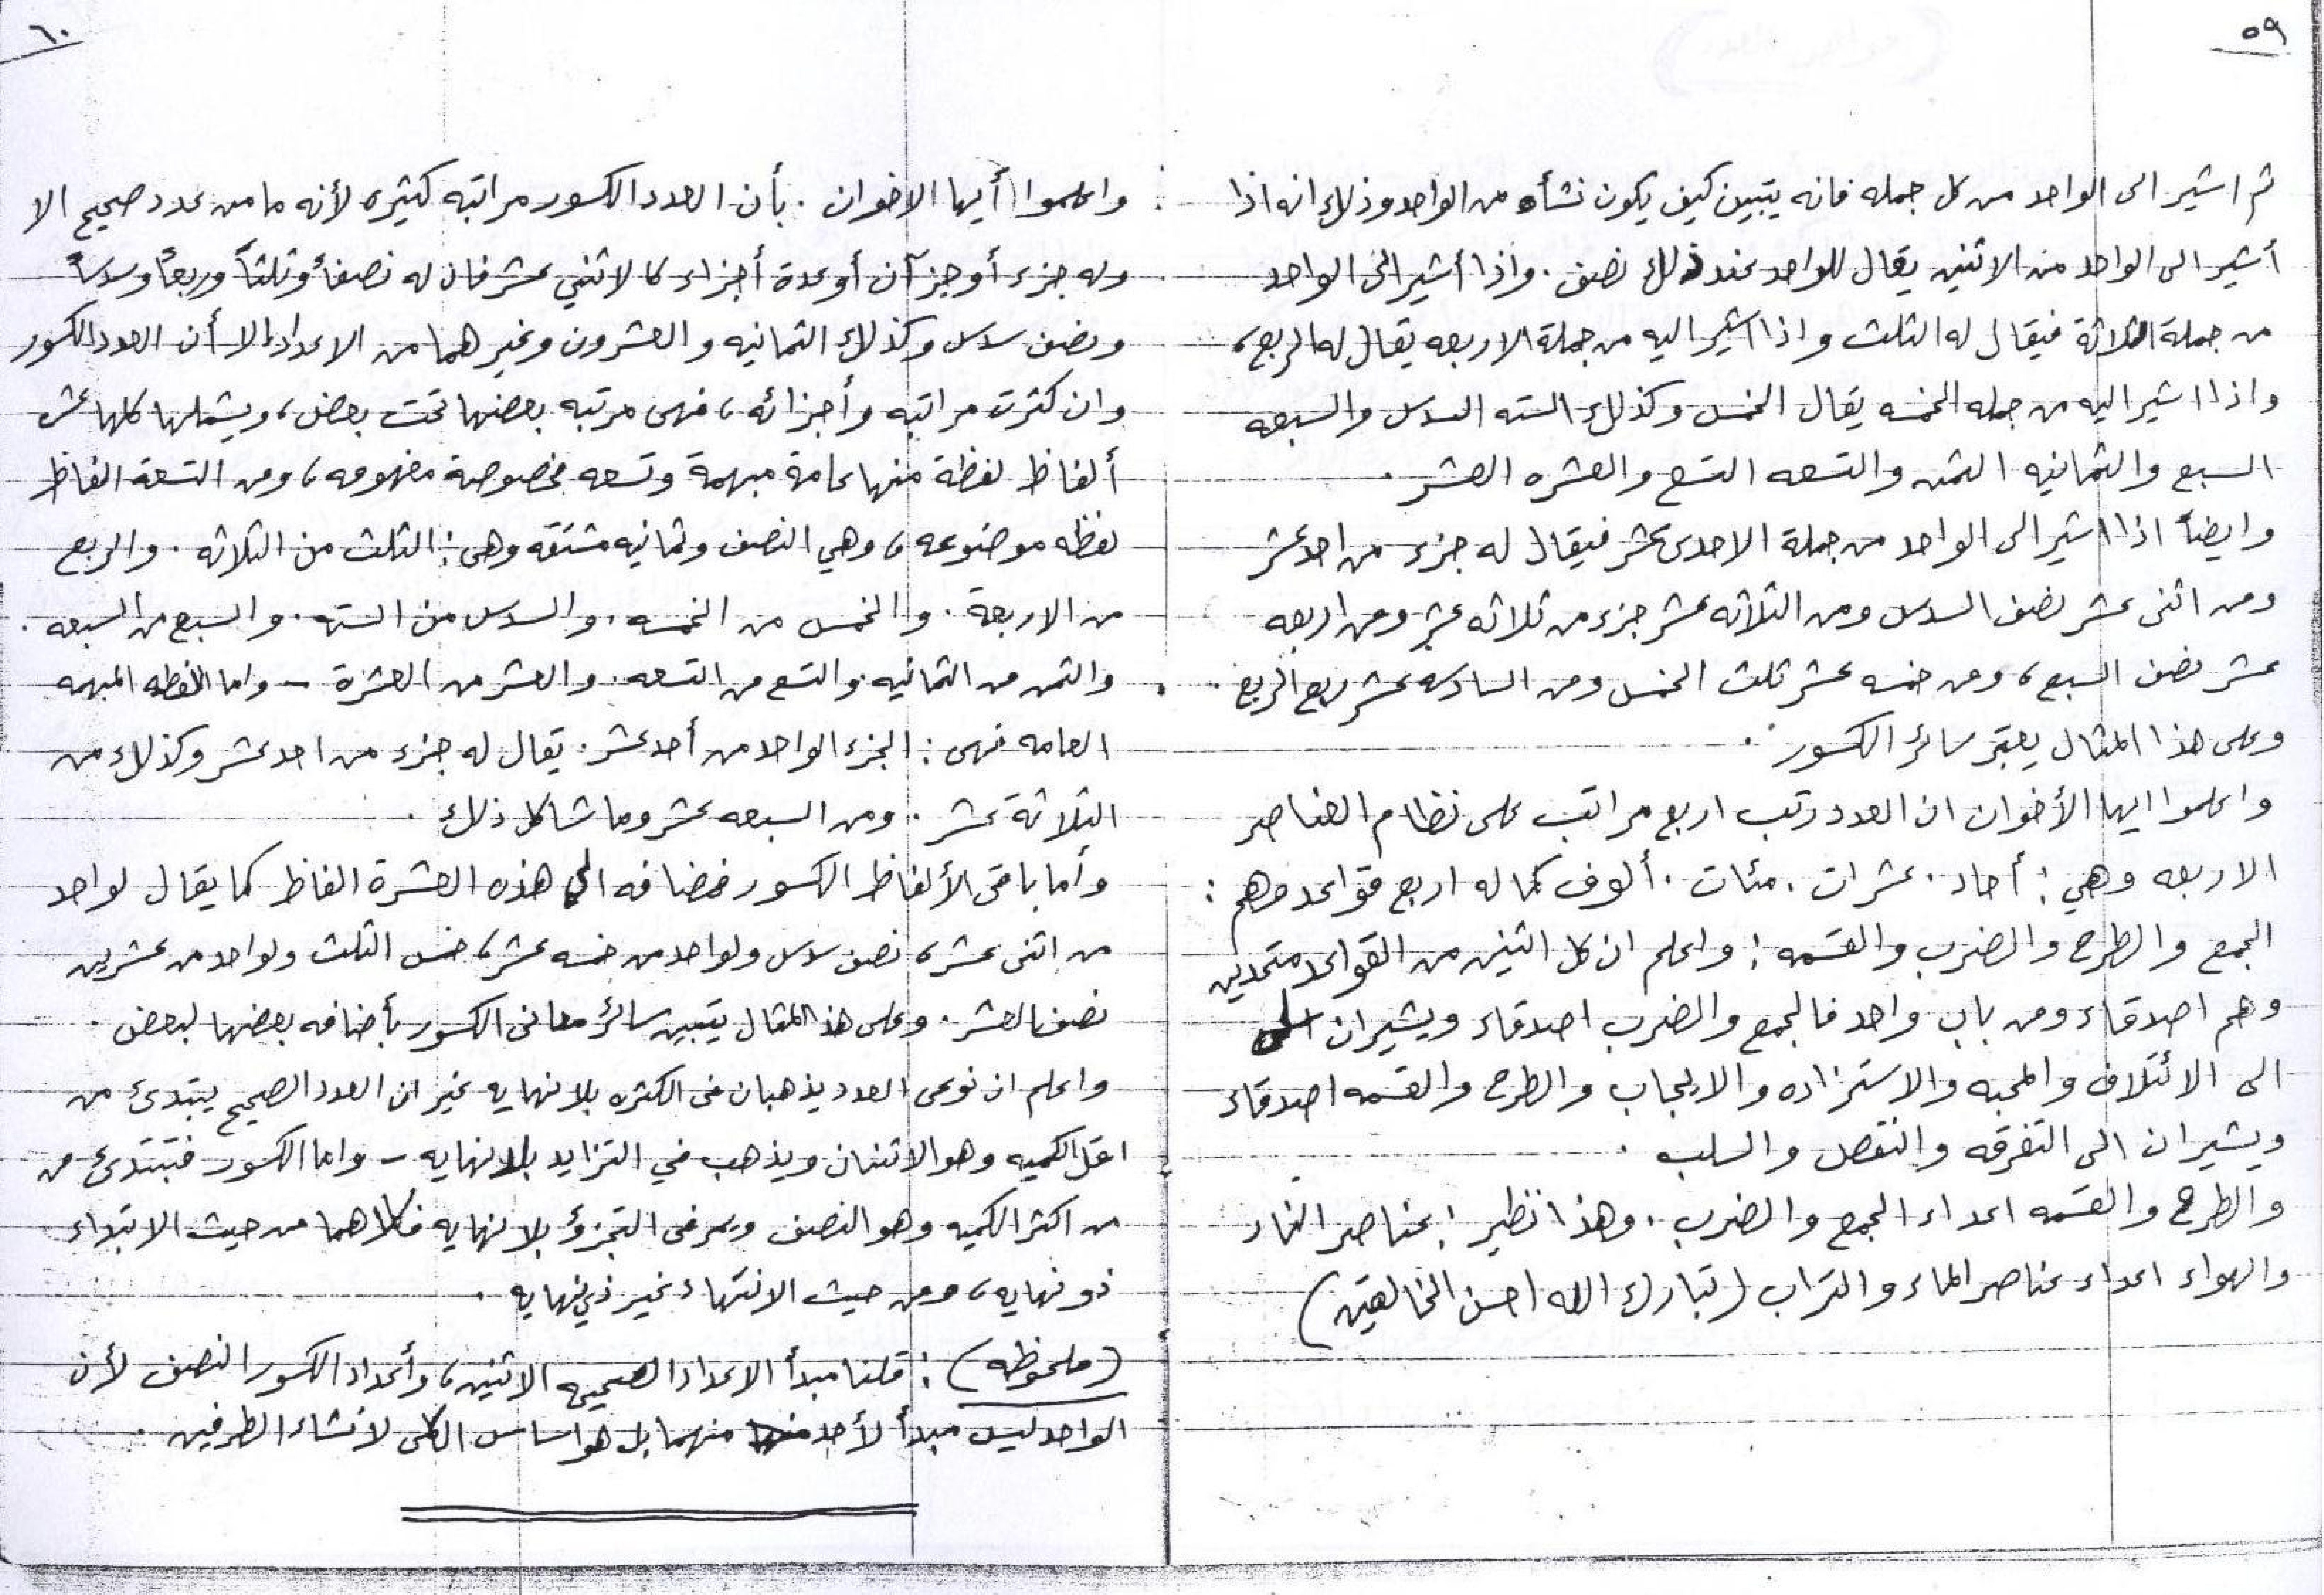 ٥٩
ثم اشير الى الواحد من كل جمله فانه يتبين كيف يكون نشأه من الواحد وذلك انه اذا
أشير الى الواحد من الاثنين يقال للواحد عند ذلك نصف . واذا أشير الى الواحد
من جملة الثلاثة فيقال له الثلث واذا اشير اليه من جملة الاربعه يقال له الربع ،
واذا اشير اليه من جمله الخمسه يقال الخمس وكذلك السته السدس والسبعه
السبع والثمانيه الثمن والتسعه التسع والعشره العشر .
وايضاً اذا اشير الى الواحد من جملة الاحدى عشر فيقال له جزء من احد عشر
ومن اثنى عشر نصف السدس ومن الثلاثه عشر جزء من ثلاثه عشر ومن اربعه
عشر نصف السبع ، ومن خمسه عشر ثلث الخمس ومن السادسه عشر ربع الربع .
وعلى هذا المثال يعتبر سائر الكسور .
واعلموا ايها الأخوان ان العدد رتب اربع مراتب على نظام العناصر
الاربعه وهي : أحاد . عشرات . مئات . ألوف كما له اربع قواعد وهم :
الجمع والطرح والضرب والقسمه : واعلم ان كل اثنين من القواعد متحدين
وهم اصدقاء ومن باب واحد فالجمع والضرب اصدقاء ويشيران
الى الائتلاف والمحبه والاستزاده والايجاب والطرح والقسمه اصدقاء
ويشيران الى التفرقه والنقص والسلب .
والطرح والقسمه اعداء الجمع والضرب . وهذا نظير : عناصر النار
والهواء اعداء عناصر الماء والتراب (تبارك الله احسن الخالقين)
٦٠
واعلموا أيها الاخوان . بأن العدد الكسور مراتبه كثيره لأنه ما من عدد صحيح الا
وله جزء أو جزآن أو عدة أجزاء كالاثني عشر فان له نصفاً وثلثاً وربعاً وسدساً
ونصف سدس وكذلك الثمانيه والعشرون وغيرهما من الاعداد الا أن العدد الكسور
وان كثرت مراتبه وأجزائه ، فهى مرتبه بعضها تحت بعض ، ويشملها كلها عشر
ألفاظ لفظة منها عامة مبهمة وتسعه مخصوصة مفهومه ، ومن التسعة الفاظ
لفظه موضوعه ، وهي النصف وثمانيه مشتقه وهى : الثلث من الثلاثه . والربع
من الاربعة . والخمس من الخمسه . والسدس من السته . والسبع من السبعه .
والثمن من الثمانيه . والتسع من التسعه . والعشر من العشرة – واما اللفظه المبهمه
العامه فهى : الجزء الواحد من أحد عشر . يقال له جزء من احد عشر وكذلك من
الثلاثة عشر . ومن السبعه عشر وما شاكل ذلك .
وأما باقى الألفاظ الكسور فمضافه الى هذه العشرة الفاظ كما يقال لواحد
من اثنى عشر ، نصف سدس ولواحد من خمسه عشر ، خمس الثلث ولواحد من عشرين
نصف العشر . وعلى هذا المثال يتبين سائر معانى الكسور بأضافه بعضها لبعض .
واعلم ان نوعى العدد يذهبان فى الكثره بلا نهايه غير ان العدد الصحيح يبتدئ من
اقل الكميه وهو الاثنان ويذهب في التزايد بلا نهايه – واما الكسور فتبتدئ من
من اكثر الكميه وهو النصف ويمر فى التجزؤ بلا نهايه فكلاهما من حيث الابتداء
ذو نهايه ، ومن حيث الانتهاء غير ذي نهايه .
(ملحوظه) : قلنا مبدأ الاعداد الصحيحه الاثنين ، وأعداد الكسور النصف لأن
الواحد ليس مبدأ لأحد منهما بل هو اساس الكلى لانشاء الطرفين .